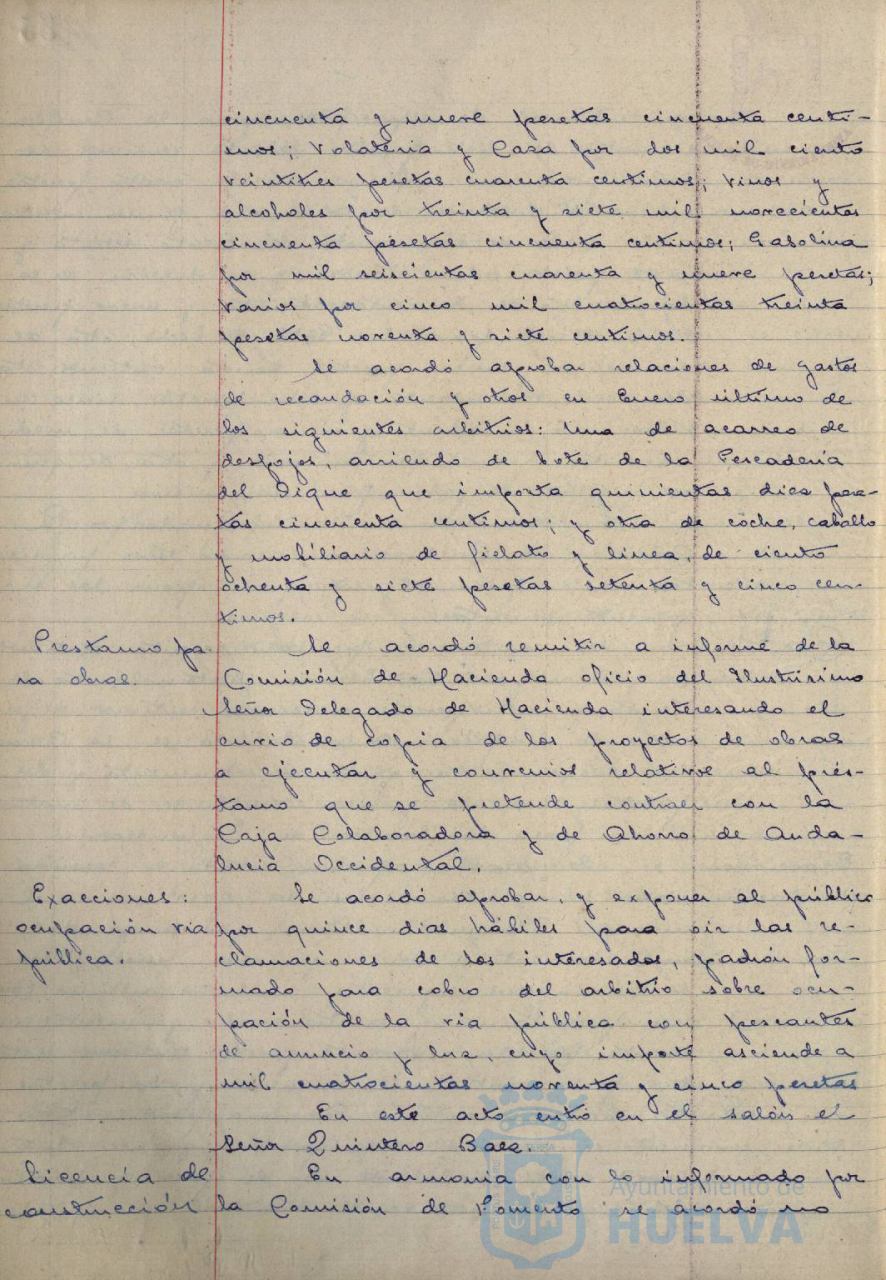 cincuenta y nueve pesetas cincuenta centi-
mos; Volateria y Caza por dos mil ciento
veintitres pesetas cuarenta centimos; vinos y
alcoholes por treinta y siete mil novecientas
cincuenta pesetas cincuenta centimos; Gasolina
por mil seiscientas cuarenta y nueve pesetas;
Varios por cinco mil cuatrocientas treinta
pesetas noventa y siete centimos.
Se acordó aprobar relaciones de gastos
de recaudación y otros en Enero último de
los siguientes arbitrios: Una de acarreo de
despojos, arriendo de bote de la Pescadería
del Dique que importa quinientas diez pese-
tas cincuenta centimos; y otra de coche, caballo
y mobiliario de fielato y linea, de ciento
ochenta y siete pesetas setenta y cinco cen-
timos.
Prestamo pa-
ra obras.
Se acordó remitir a informe de la
Comisión de Hacienda oficio del Ilustrisimo
Señor Delegado de Hacienda interesando el
envio de copia de los proyectos de obras
a ejecutar y convenios relativos al prés-
tamo que se pretende contraer con la
Caja Colaboradora y de Ahorro de Anda-
lucia Occidental.
Exacciones:
ocupación via
pública.
Se acordó aprobar, y exponer al público
por quince dias hábiles para oir las re-
clamaciones de los interesados, padrón for-
mado para cobro del arbitrio sobre ocu-
pación de la via pública con pescantes
de anuncio y luz, cuyo importe asciende a
mil cuatrocientas noventa y cinco pesetas
En este acto entró en el salón el
Señor Quintero Baez.
Licencia de
construcción
En armonia con lo informado por
la Comisión de Fomento se acordó no
Ayuntamiento de
HUELVA